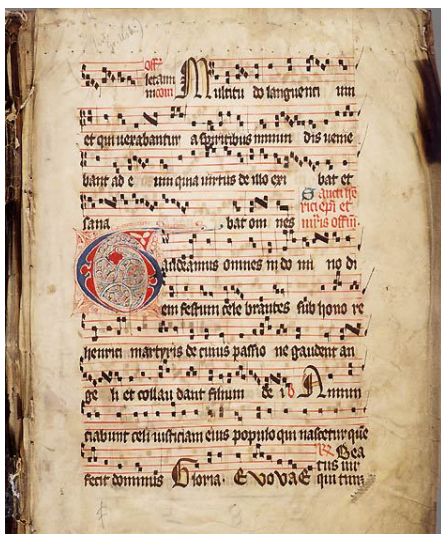 off̄
letam M ultitu do languenti um
m̄ com
et qui vexabantur a spiritibus inmun dis venie
bant ad e um quia virtus de illo exi bat et
sana bat om nes
Sancti he
rici ep̄i et
m̄ris offm̄.
G audeamus omnes in do mi no di
em festum cele brantes sub hono re
henrici martyris de cuius passio ne gaudent an
ge li et collau dant filium de i A nnun
ciabunt celi iusticiam eius populo qui nascetur que
fecit dominus Gloria. EVOVAE
Bea
tus vir
qui tim